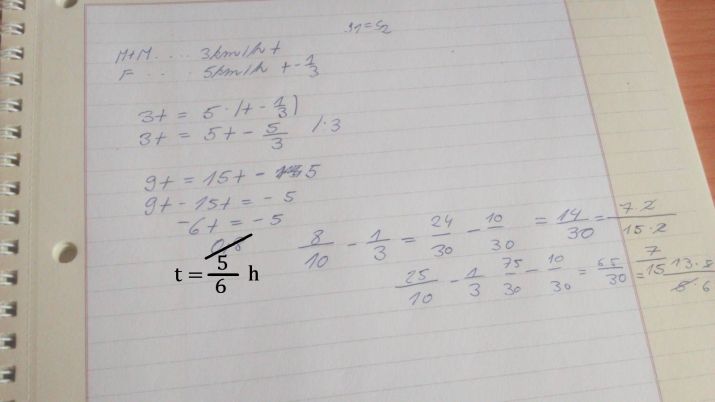 s1=s2
M+M .... 3km/h t
F ... 5km/h t - 1/3
3t = 5 · (t - 1/3)
3t = 5t - 5/3 /·3
9t = 15t - 5
9t - 15t = -5
-6t = -5
t = 5/6 h
8/10 - 1/3 = 24/30 - 10/30 = 14/30 = 7·2/15·2
7/15
25/10 - 1/3 75/30 - 10/30 = 65/30 =